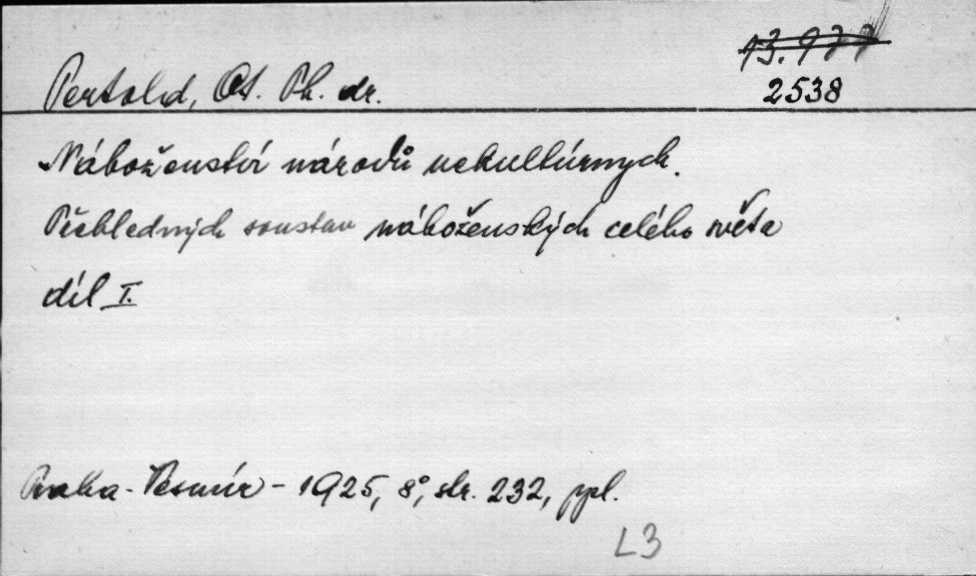 13.977
2538
Pertold, Ot. Ph. dr.
Náboženství národů nekultúrnych.
Přehledných soustav náboženských celého světa
díl I.
Praha - Vesmír - 1925, 8°, str. 232, ppl.
L3